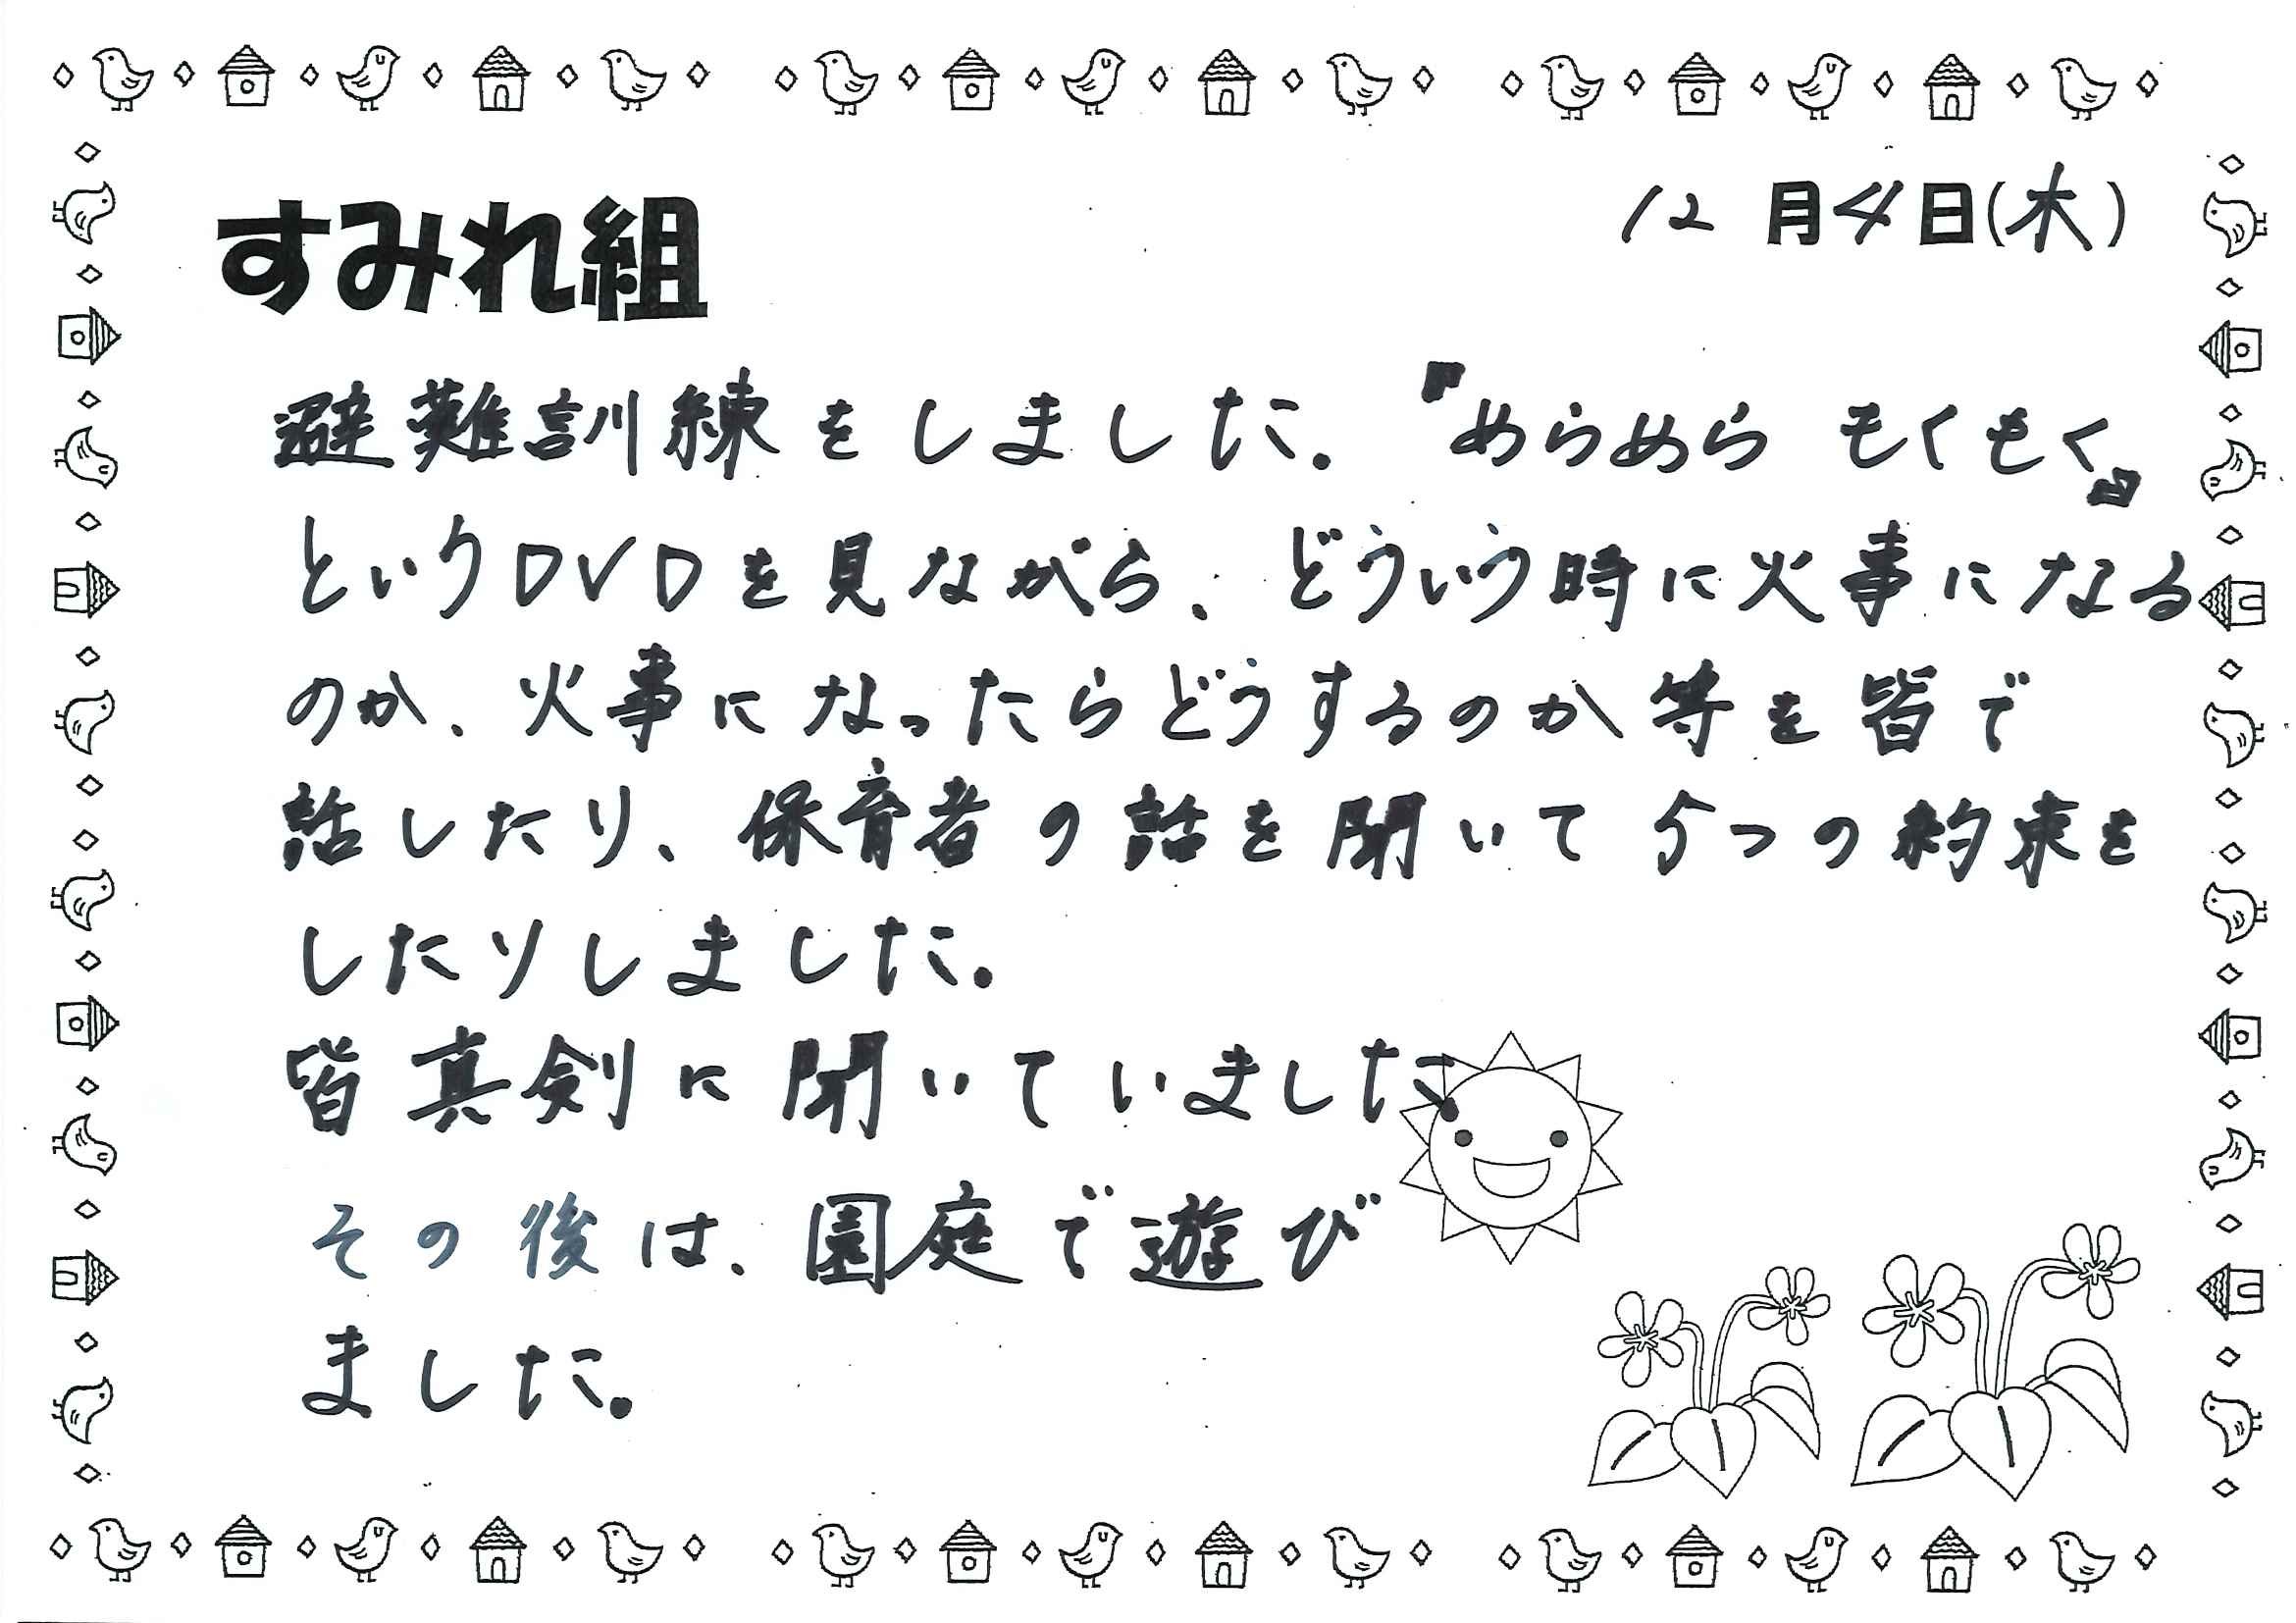 すみれ組
12月4日(木)
避難訓練をしました。『めらめら もくもく』
というDVDを見ながら、どういう時に火事になる
のか、火事になったらどうするのか等を皆で
話したり、保育者の話を聞いて5つの約束を
したりしました。
皆真剣に聞いていました。
その後は、園庭で遊び
ました。